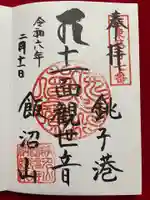 奉拝
銚子港
十一面観世音
飯沼山
令和六年
二月十一日